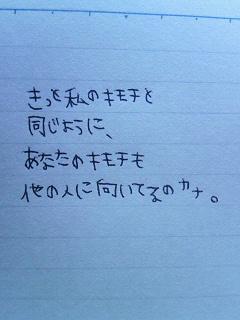 きっと私のキモチと
同じように、
あなたのキモチも
他の人に向いてるのカナ。